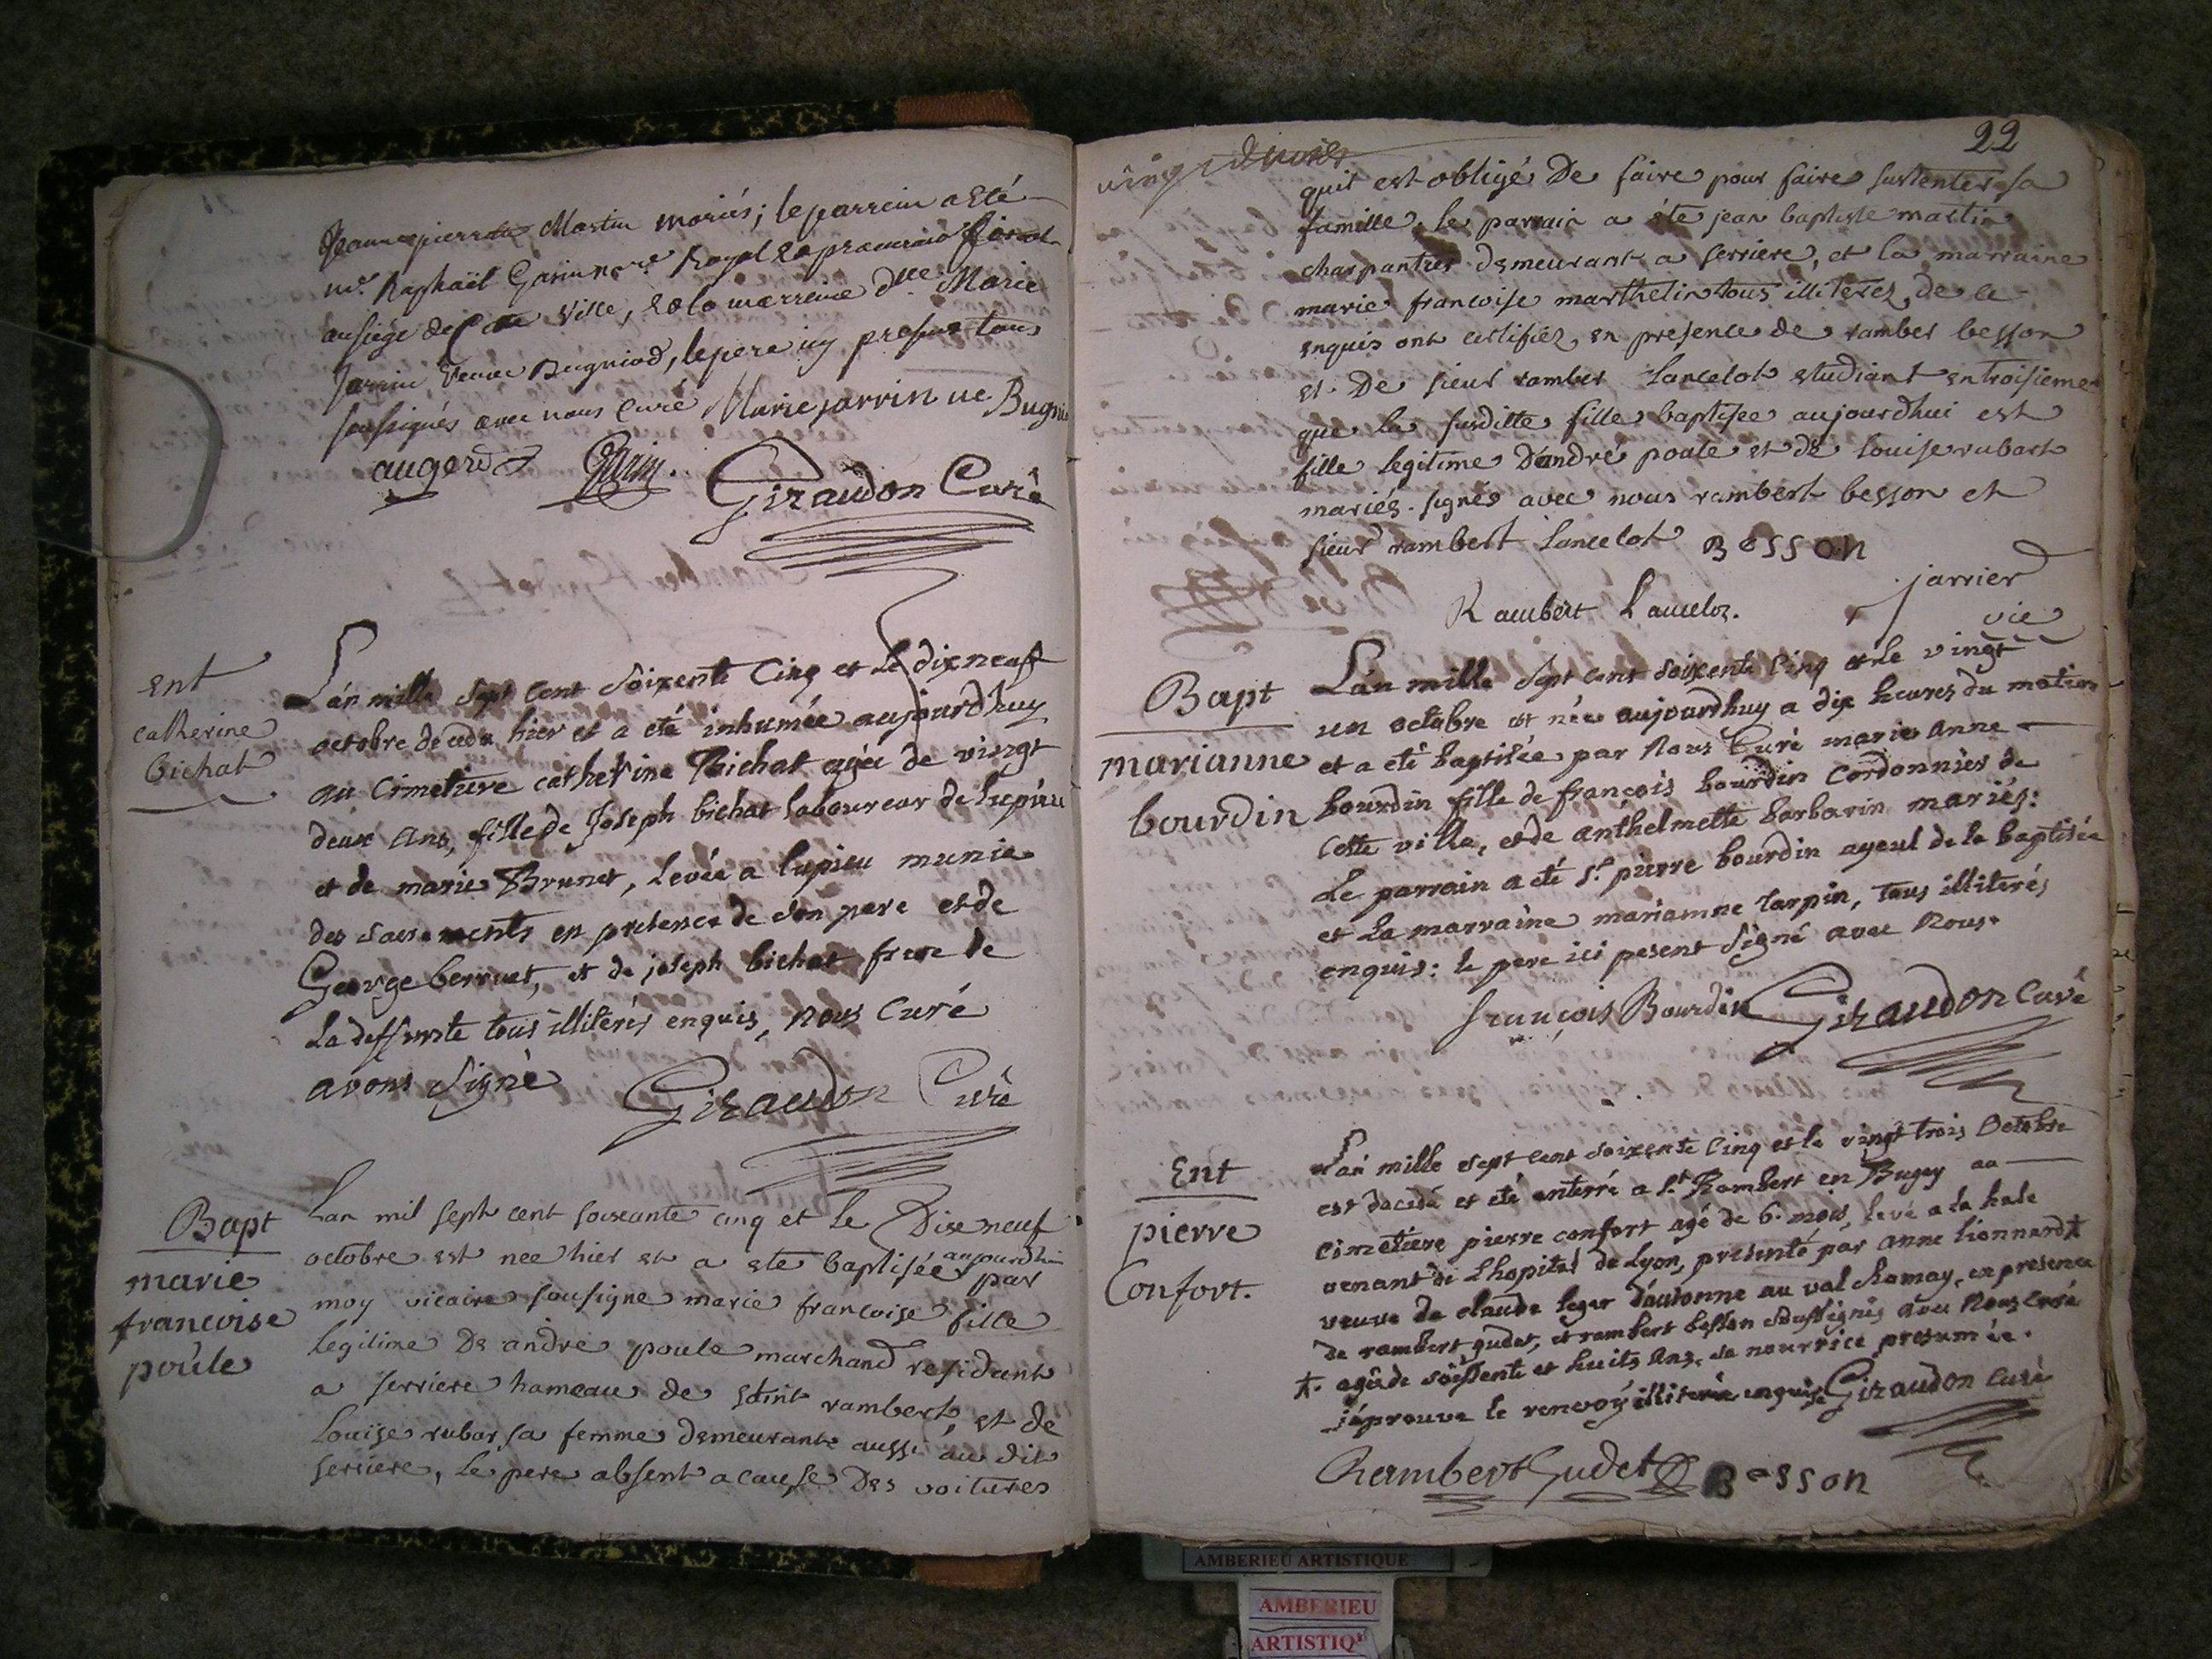 Jeanne pierrette Martin mariés; le parrein a été
mr. Raphaël Garin nore Royal & procureur
au siége de cette Ville, & la marreine dlle Marie
Jarrin veuve Bugniod, le pere icy present tous
soussignés avec nous curé Marie jarrin ve Bugniod
augerd Garin. Giraudon Curé
ent
catherine
bichat
L'an mille sept cent soixente cinq et le dixneuf
octobre décedée hier et a eté inhumée aujourdhuy
au cimetiere catherine Bichat agée de vingt
deux ans, fille de Joseph bichat laboureur de lupieu
et de marie Brunet, levée a lupieu munie
des sacrements en presence de son pere et de
George berruet, et de joseph bichat frere de
la deffunte tous illiterés enquis, nous curé
avons signé Giraudon Curé
Bapt
marie
francoise
poûle
Lan mil sept cent soixante cinq et le Dix neuf
octobre est nee hier et a ete baptisée aujourdhui par
moy vicaire sousigne marie francoise fille
legitime De andré poule marchand residant
a serriere hameau de saint rambert, et de
Louise rubar sa femme demeurante aussi au dit
serriere, le pere absent a cause Des voitures
22
vingt deuxieme
quil est obligé De faire pour faire sustenter sa
famille, le parrain a éte jean baptiste martin
charpantier demeurant a serriere, et la marraine
marie francoise marthelin tous illiterez, de ce
enquis ont certifiéz, en presence de rambert besson
et De sieur rambert Lancelot estudiant en troisieme
que la susditte fille baptisée aujourdhui est
fille legitime D'andré poule et de louise rubart
mariés. signés avec nous rambert besson et
sieur rambert Lancelot Besson
Rambert Lancelot. jarrier
vie
Bapt
marianne
bourdin
L'an mille sept cent soixente cinq et le vingt
un octobre est née aujourdhuy a dix heures du matin
et a eté baptisée par Nous Curé marie anne
bourdin fille de françois bourdin Cordonnier de
cette ville, et de anthelmette barbarin mariés:
Le parrain a eté sr. pierre bourdin ayeul de la baptisée
et la marraine marianne tarpin, tous illiterés
enquis: le pere ici present signé avec Nous.
françois Bourdin Giraudon Curé
Ent
pierre
Confort.
L'an mille sept cent soixente cinq et le vingt trois Octobre
est decedé et eté enterré a St Rambert en Bugey au
cimetiere pierre confort agé de 6. mois, levé a la hale
venant de Lhopital de Lyon, presenté par anne lionnard +
veuve de claude leger d'autonne au val Romay, en presence
de rambert gudet, et rambert besson soussignés avec Nous Curé
+. agée de soissente et huits ans, sa nourrice presumée.
j'aprouve le renvoy illiterée enquise Giraudon Curé
Rambert Gudet Besson
AMBERIEU ARTISTIQUE
AMBERIEU
ARTISTIQ